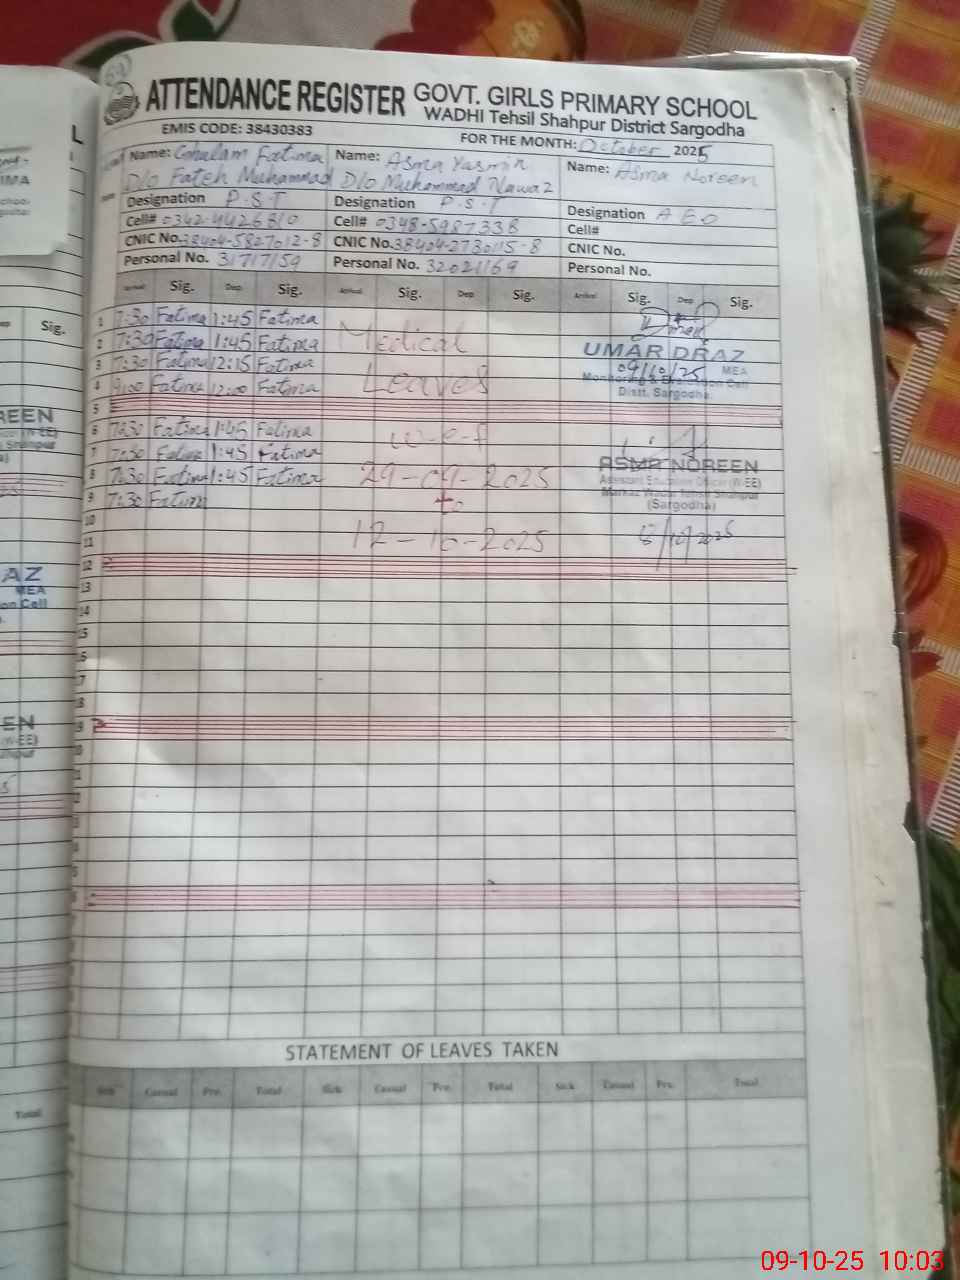 ATTENDANCE REGISTER GOVT. GIRLS PRIMARY SCHOOL
WADHI Tehsil Shahpur District Sargodha
EMIS CODE: 38430383
FOR THE MONTH: October 2025
Name: Ghulam Fatima Name: Asma Yasmin Name: Asma Noreen
D/o Fateh Muhammad D/o Muhammad Nawaz
Designation P.S.T Designation P.S.T Designation A E O
Cell# 0342-4426810 Cell# 0348-5987338 Cell#
CNIC No. 38404-5827012-8 CNIC No. 38404-2730115-8 CNIC No.
Personal No. 31717159 Personal No. 32021169 Personal No.
Arrival Sig. Dep Sig. Arrival Sig. Dep Sig. Arrival Sig. Dep Sig.
1 7:30 Fatima 1:45 Fatima
2 7:30 Fatima 1:45 Fatima Medical
UMAR DRAZ
3 7:30 Fatima 12:15 Fatima
09/10/25 MEA
4 9:00 Fatima 12:00 Fatima Leaves
Monitoring & Evaluation Cell
Distt. Sargodha.
5
6 7:30 Fatima 1:45 Fatima w-e-f
7 7:30 Fatima 1:45 Fatima
ASMA NOREEN
8 7:30 Fatima 1:45 Fatima 29-09-2025
Assistant Education Officer (W-EE)
Markaz Wadhi Tehsil Shahpur
9 7:30 Fatima to
(Sargodha)
10
11 12-10-2025
12
13
14
15
16
17
18
19
STATEMENT OF LEAVES TAKEN
Sick Casual Pre. Total Sick Casual Pre. Total Sick Casual Pre. Total
REEN
Sig.
AZ
MEA
on Cell
EN
(W-EE)
Total
09-10-25 10:03